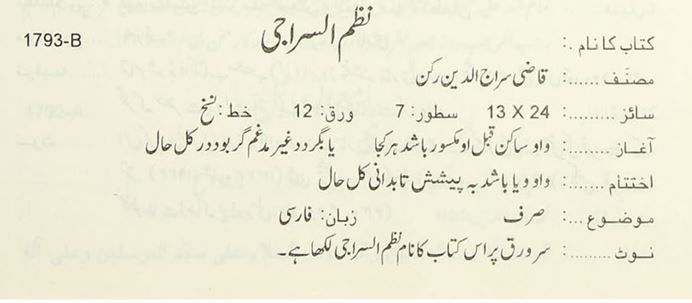 کتاب کا نام .: نظم السراجی 1793-B
مصنّف ......: قاضی سراج الدین رکن
سائز ........: 13 X 24 سطور: 7 ورق: 12 خط: نسخ
آغاز .......: واو ساکن قبل او مکسور باشد ہر کجا یا بگردد غیر مدغم گر بود در کل حال
اختتام ......: واو و یا باشد بہ پیشش تا بدانی کل حال
موضوع ...: صرف زبان: فارسی
نوٹ .........: سر ورق پر اس کتاب کا نام نظم السراجی لکھا ہے۔